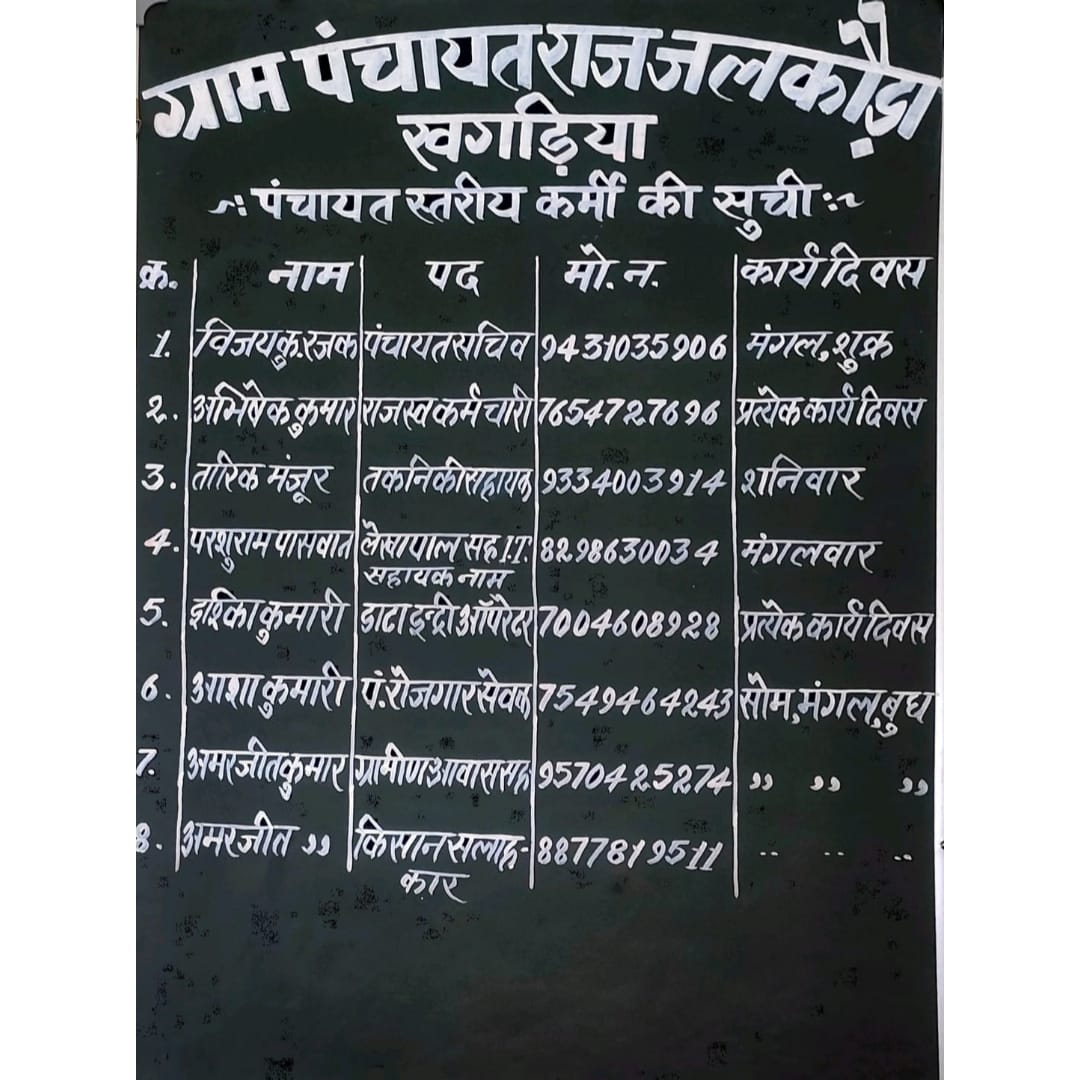 ग्राम पंचायत राज जलकौड़ा
खगड़िया
पंचायत स्तरीय कर्मी की सुची
क्र. नाम पद मो. न. कार्य दिवस
1. विजय कु. रजक पंचायत सचिव 9431035906 मंगल, शुक्र
2. अभिषेक कुमार राजस्व कर्मचारी 7654727696 प्रत्येक कार्य दिवस
3. तारिक मंजूर तकनिकी सहायक 9334003914 शनिवार
4. परशुराम पासवान लेखापाल सह I.T. 8298630034 मंगलवार
सहायक नाम
5. इश्किा कुमारी डाटा इन्ट्री ऑपरेटर 7004608928 प्रत्येक कार्य दिवस
6. आशा कुमारी पं. रोजगार सेवक 7549464243 सोम, मंगल, बुध
7. अमरजीत कुमार ग्रामीण आवास सह 9570425274 ,, ,, ,,
8. अमरजीत ,, किसान सलाह- 8877819511 .. .. ..
कार